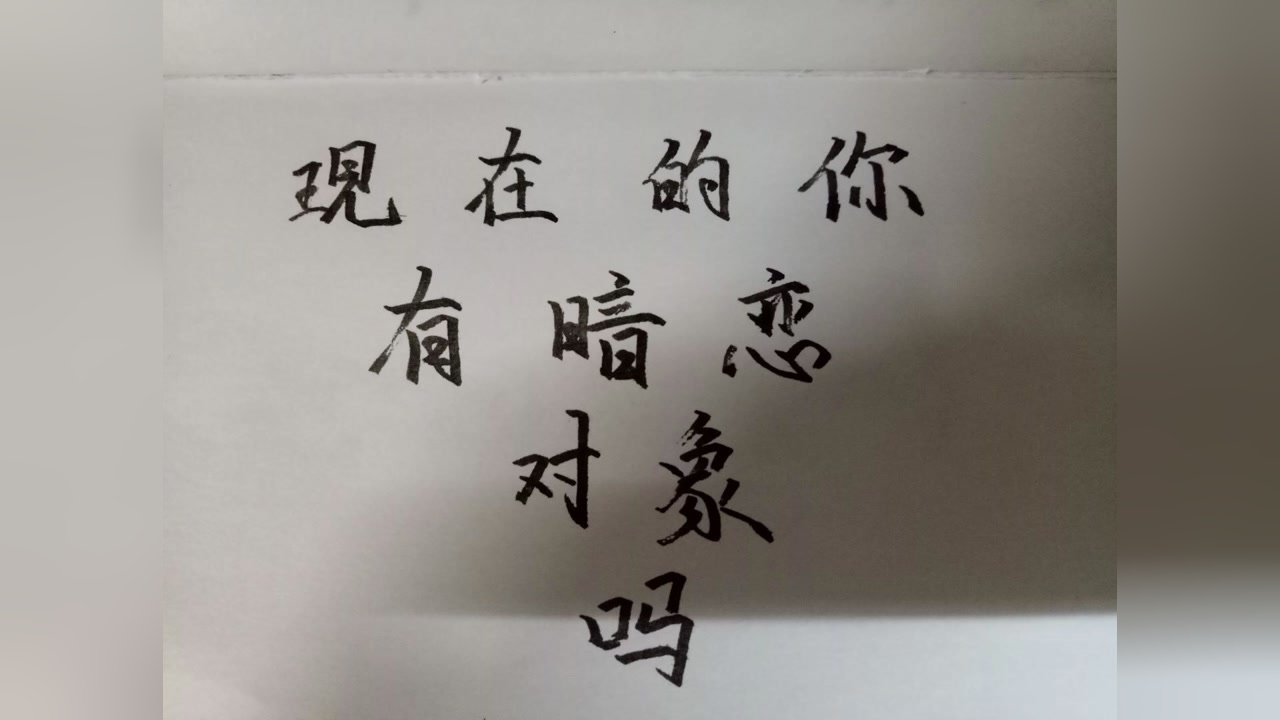 现在的你
有暗恋
对象
吗